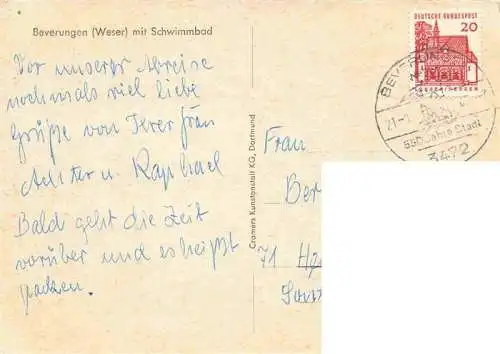 Beverungen (Weser) mit Schwimmbad
Vor unserer Abreise
nochmals viel liebe
Grüße von Ihrer Frau
u. Raphael
Bald geht die Zeit
vorüber und es heißt
packen.
Cramers Kunstanstalt KG, Dortmund
DEUTSCHE BUNDESPOST
20
LORSCH/HESSEN
BEVERUN
21-
850 Jahre Stadt
3472
Frau
Ber
71 H